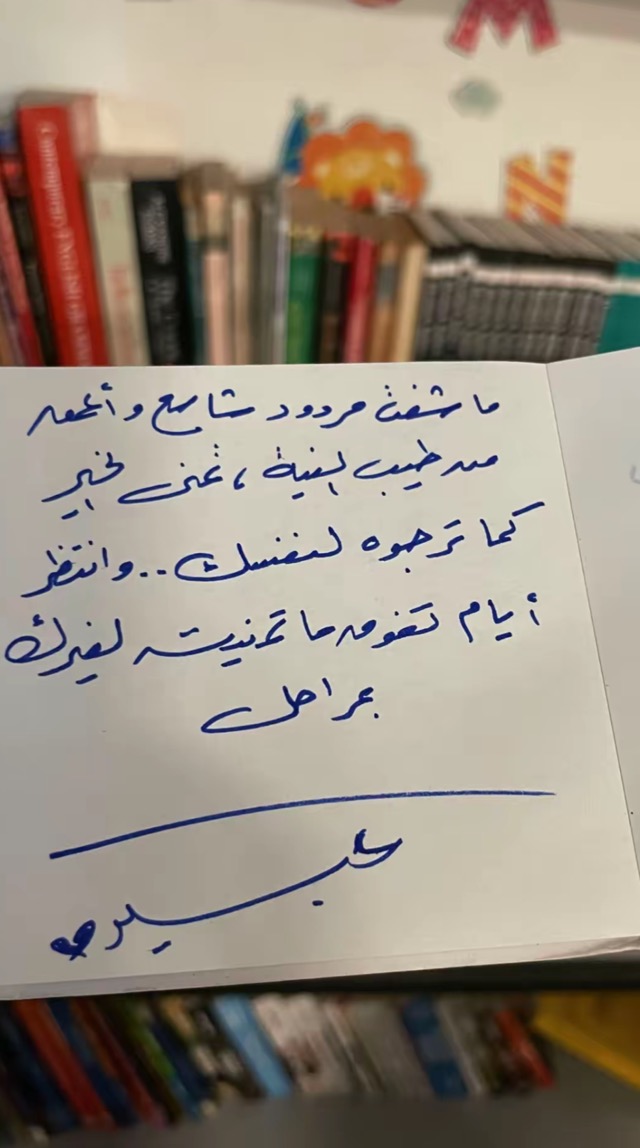 ما شفت مردود شاسع وأعمق
من طيب النية، تمنى الخير
كما ترجوه لنفسك .. وانتظر
أيام تفوق ما تمنيته لغيرك
بمراحل
عبير
M
N